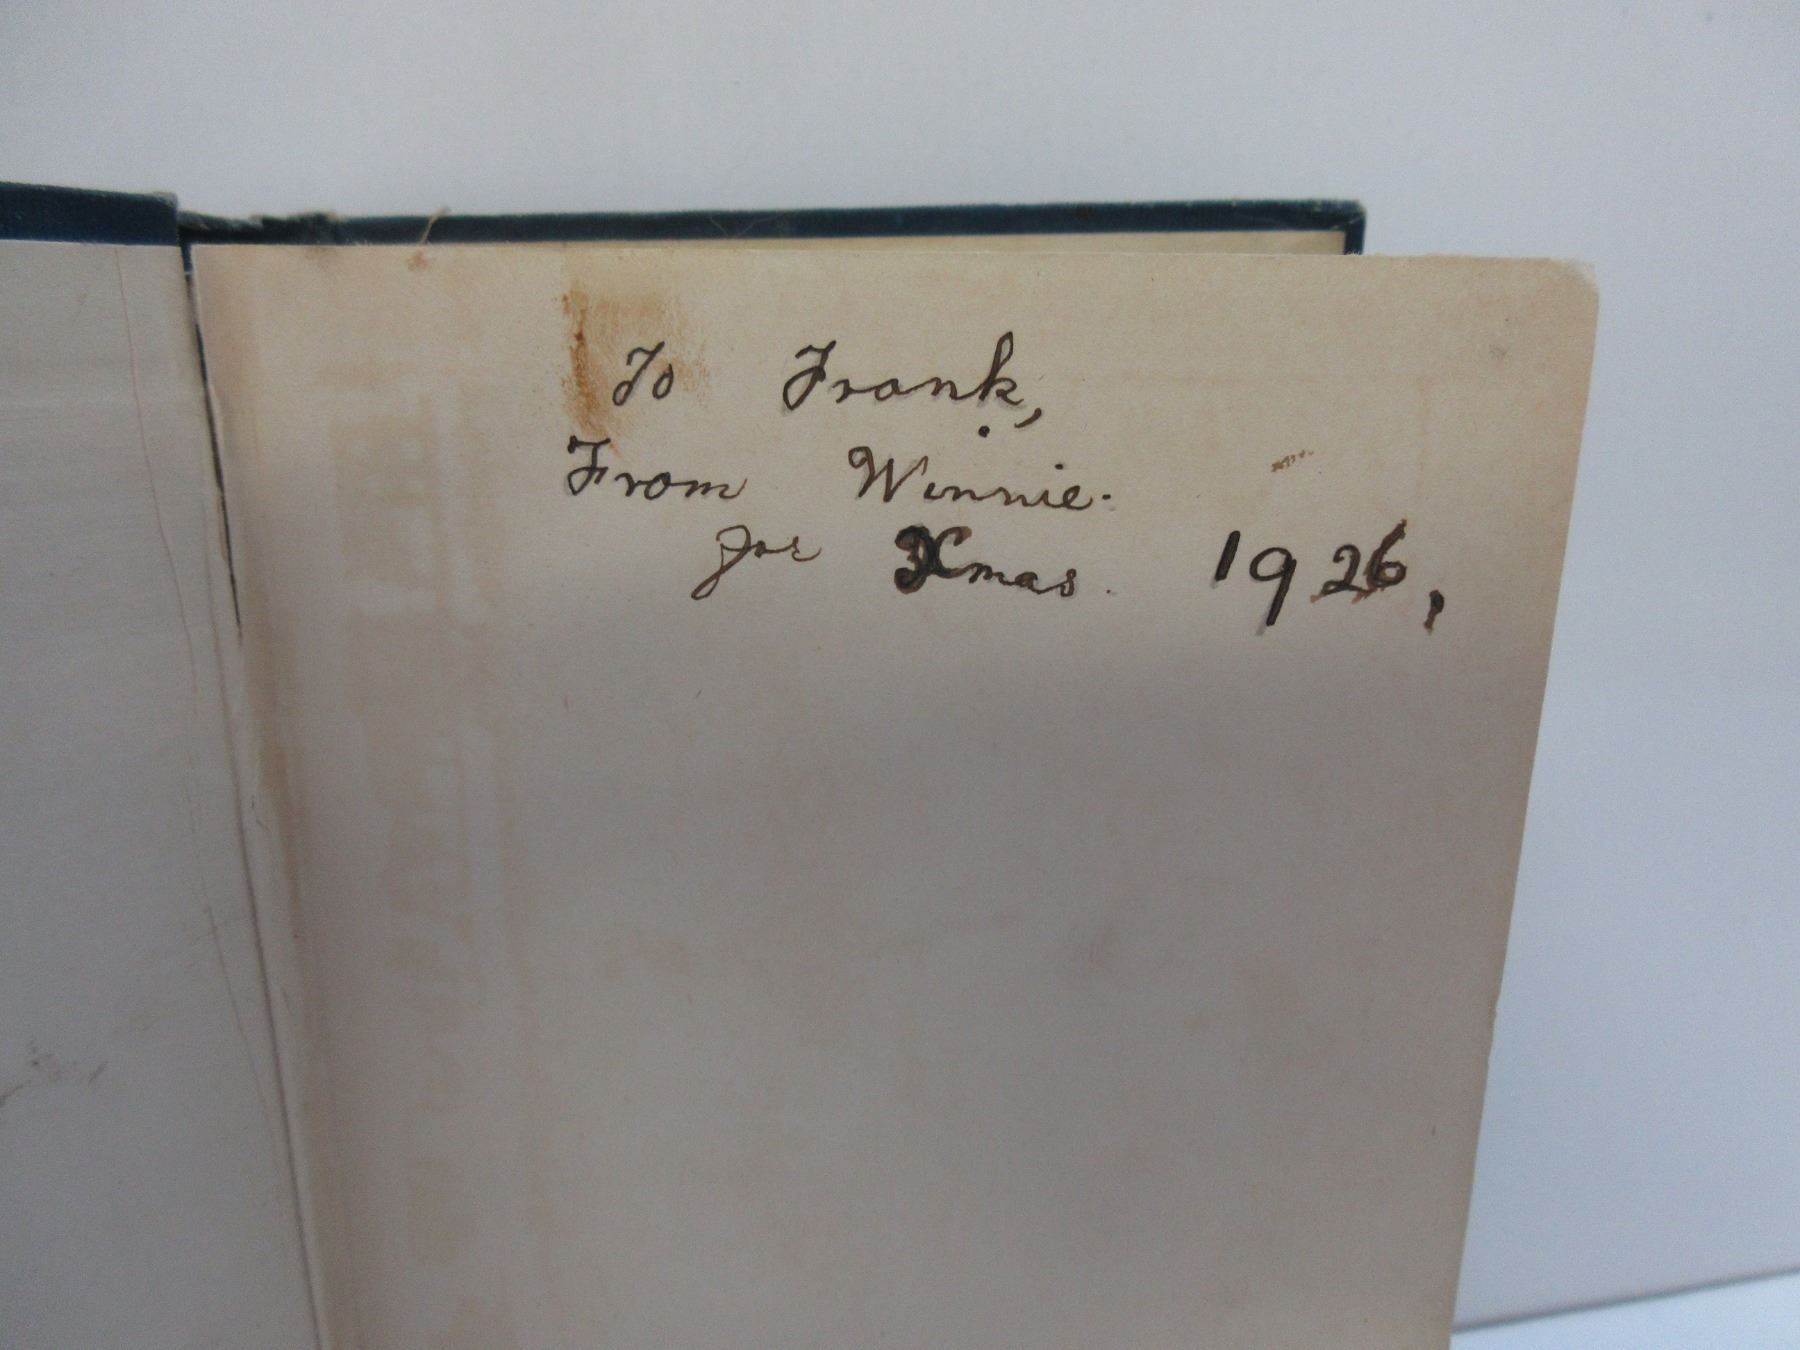 To Frank,
From Winnie.
for Xmas. 1926,